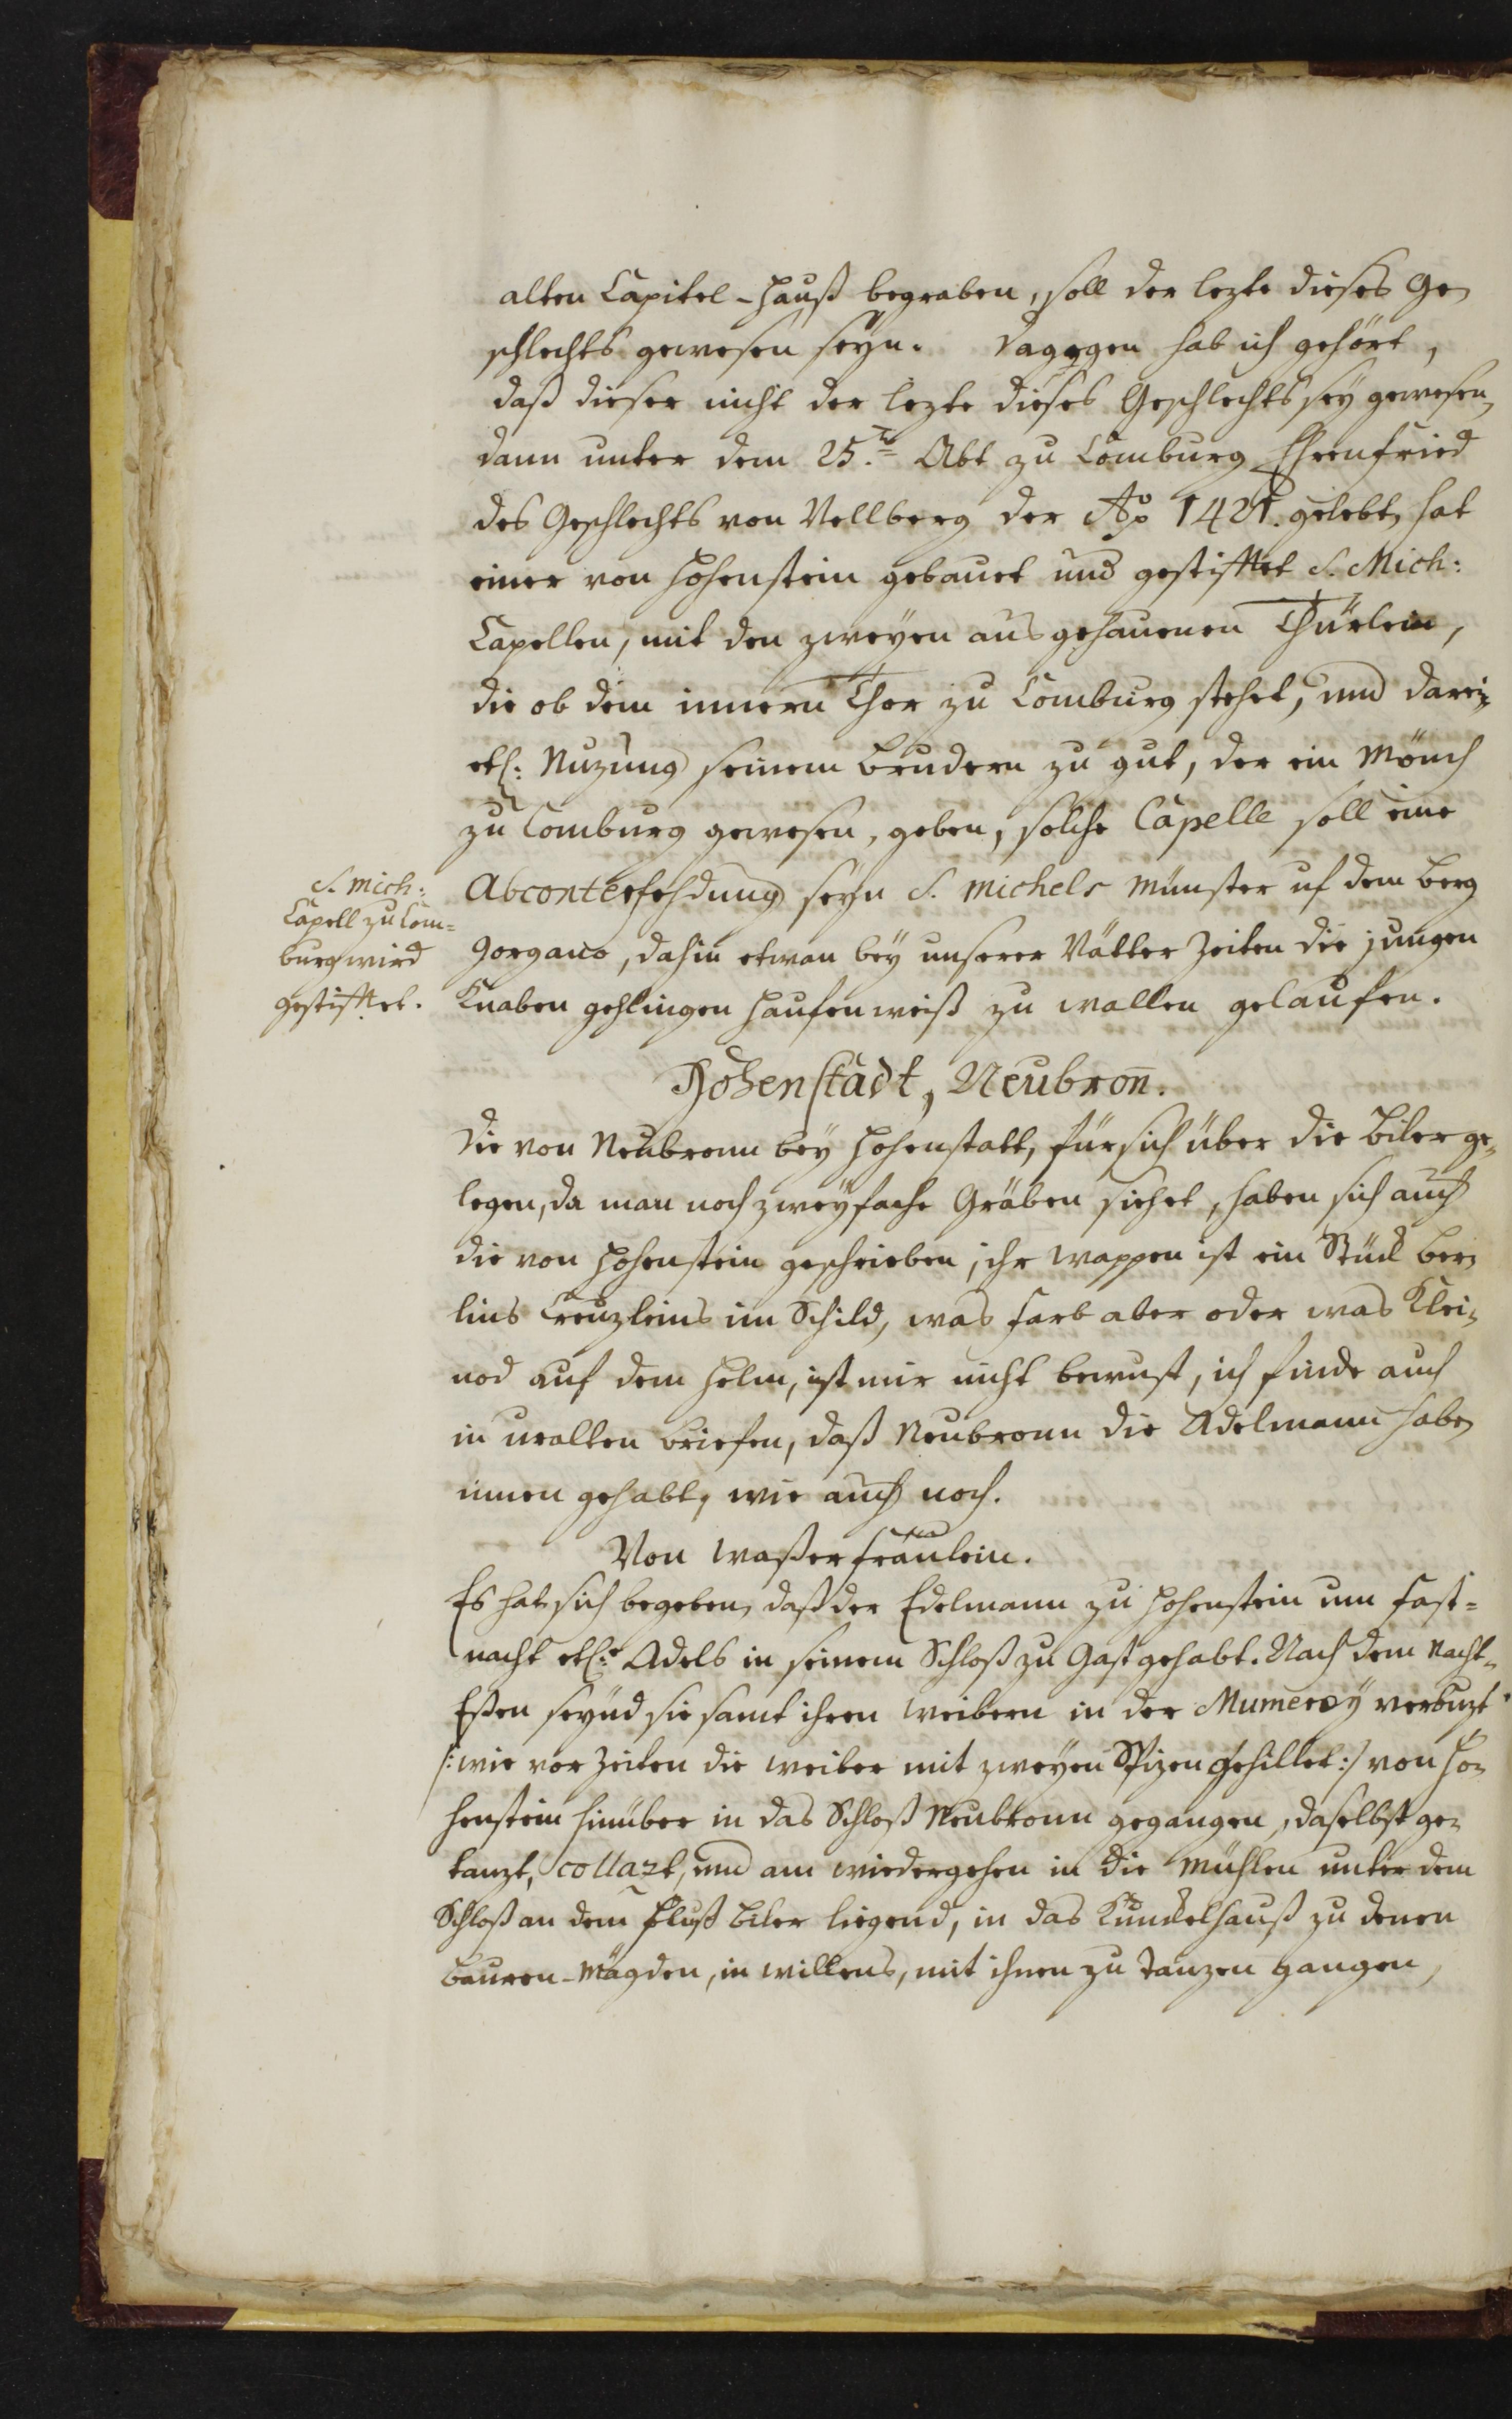 alten Capitel-Hauß begraben, soll der lezte dieses Ge-
schlechts gewesen seyn. Dagegen hab ich gehört,
daß dieser nicht der lezte dieses Geschlechts sey gewesen,
dann unter dem 25.ten Abt zu Comburg Ehrenfried
des Geschlechts von Vellberg der Ao 1421. gelebt, hat
einer von Hohenstein gebauet und gestifftet S. Mich:
Capellen, mit den zweyen ausgehauenen Thürlein,
die ob dem innern Thor zu Comburg stehet, und darein
etl: Nuzung seinem brudern zu gut, der ein Mönch
zu Comburg gewesen, geben, solche Capelle soll eine
S. Mich:
Capell zu Com-
burg wird
gestifftet.
Abconterfehdung seyn S. Michels Münster uf dem berg
Gorgano, dahin etwan bey unserer Vätter Zeiten die jungen
Knaben gehlingen haufenweiß zu wallen gelaufen.
Hohenstadt, Neubron̄.
Die von Neubronn bey Hohenstatt, fürsich über die Biler ge-
legen, da man noch zweyfache Gräben siehet, haben sich auch
die von Hohenstein geschrieben, ihr Wappen ist ein Stück ber-
lins Creuzleins im Schild, was farb aber oder was Klei-
nod auf dem Helm, ist mir nicht bewust, ich finde auch
in uralten briefen, daß Neubronn die Adelmann habe
innen gehabt, wie auch noch.
Von Waßerfräulein.
Es hat sich begeben, daß der Edelmann zu Hohenstein um Fast-
nacht etl: Adels in seinem Schloß zu Gast gehabt. Nach dem Nacht-
Eßen seynd sie samt ihren Weibern in der Mumerey verbuzt
/: wie vor Zeiten die Weiber mit zweyen Spizen gehillet :/ von Ho-
henstein hinüber in das Schloß Neubronn gegangen, daselbst ge-
tanzt, collazt, und am wiedergehen in die Mühlen unter dem
Schloß an dem Fluß Biler liegend, in das Kunckelhauß zu denen
Bauren-Mägden, in willens, mit ihnen zu Tanzen gangen,